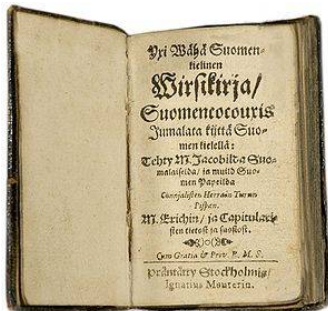 Yxi Wähä Suomen-
kielinen
Wirsikirja/
Suomentocouris
Jumalata kijttä Suo-
men kielellä:
Tehty M. Jacobilda Suo-
malaiselda/ ja muild Suo-
men Papeilda
Cunnjalisten Herrain Turun
Pispan.
M. Erichin/ ja Capitularis-
sten tietost ja suosiost.
Cum Gratia & Priv. R. M. S.
Präntätty Stockholmis/
Ignatius Meurerin.